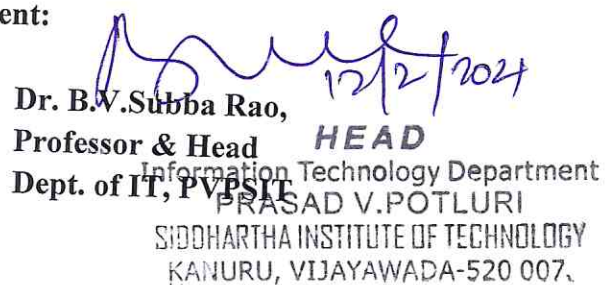 ent:
12/2/2021
Dr. B.V.Subba Rao,
Professor & Head
Dept. of IT, PVPSIT
HEAD
Information Technology Department
PRASAD V.POTLURI
SIDDHARTHA INSTITUTE OF TECHNOLOGY
KANURU, VIJAYAWADA-520 007.